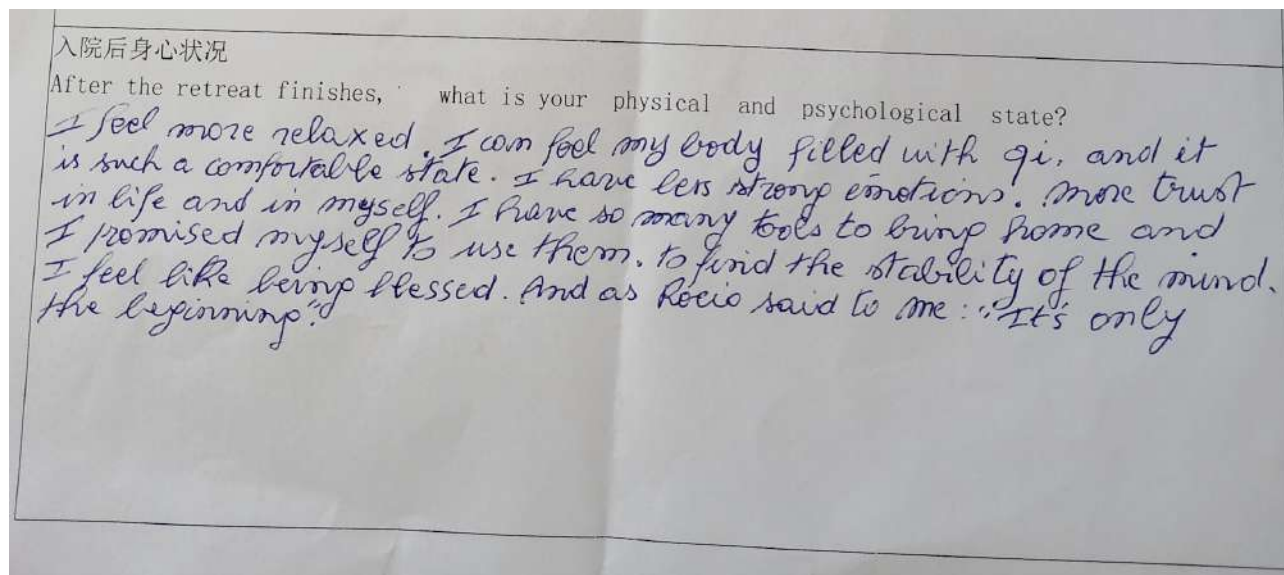 入院后身心状况
After the retreat finishes, what is your physical and psychological state?
I feel more relaxed. I can feel my body filled with qi, and it
is such a comfortable state. I have less strong emotions. more trust
in life and in myself. I have so many tools to bring home and
I promised myself to use them. to find the stability of the mind.
I feel like being blessed. And as Rocio said to me: "It's only
the beginning".